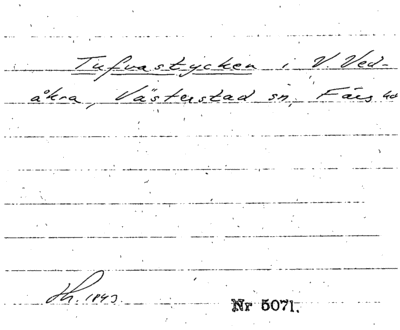 Tufvastycken i V. Ved-
åkra, Västerstad sn, Färs hd
Lh. 1843
Nr 5071.